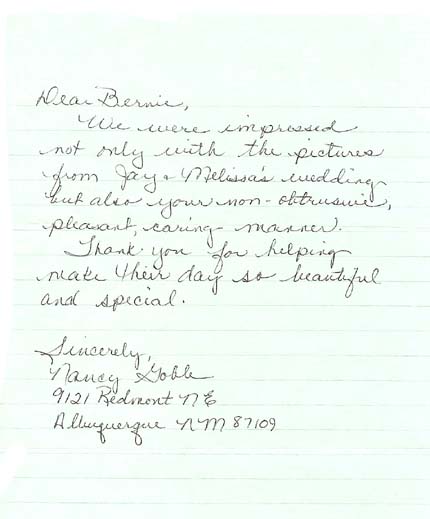 Dear Bernie,
We were impressed
not only with the pictures
from Jay & Melissa's wedding
but also your non-obtrusive,
pleasant, caring manner.
Thank you for helping
make their day so beautiful
and special.
Sincerely,
Nancy Goble
9121 Bedmont NE
Albuquerque NM 87109